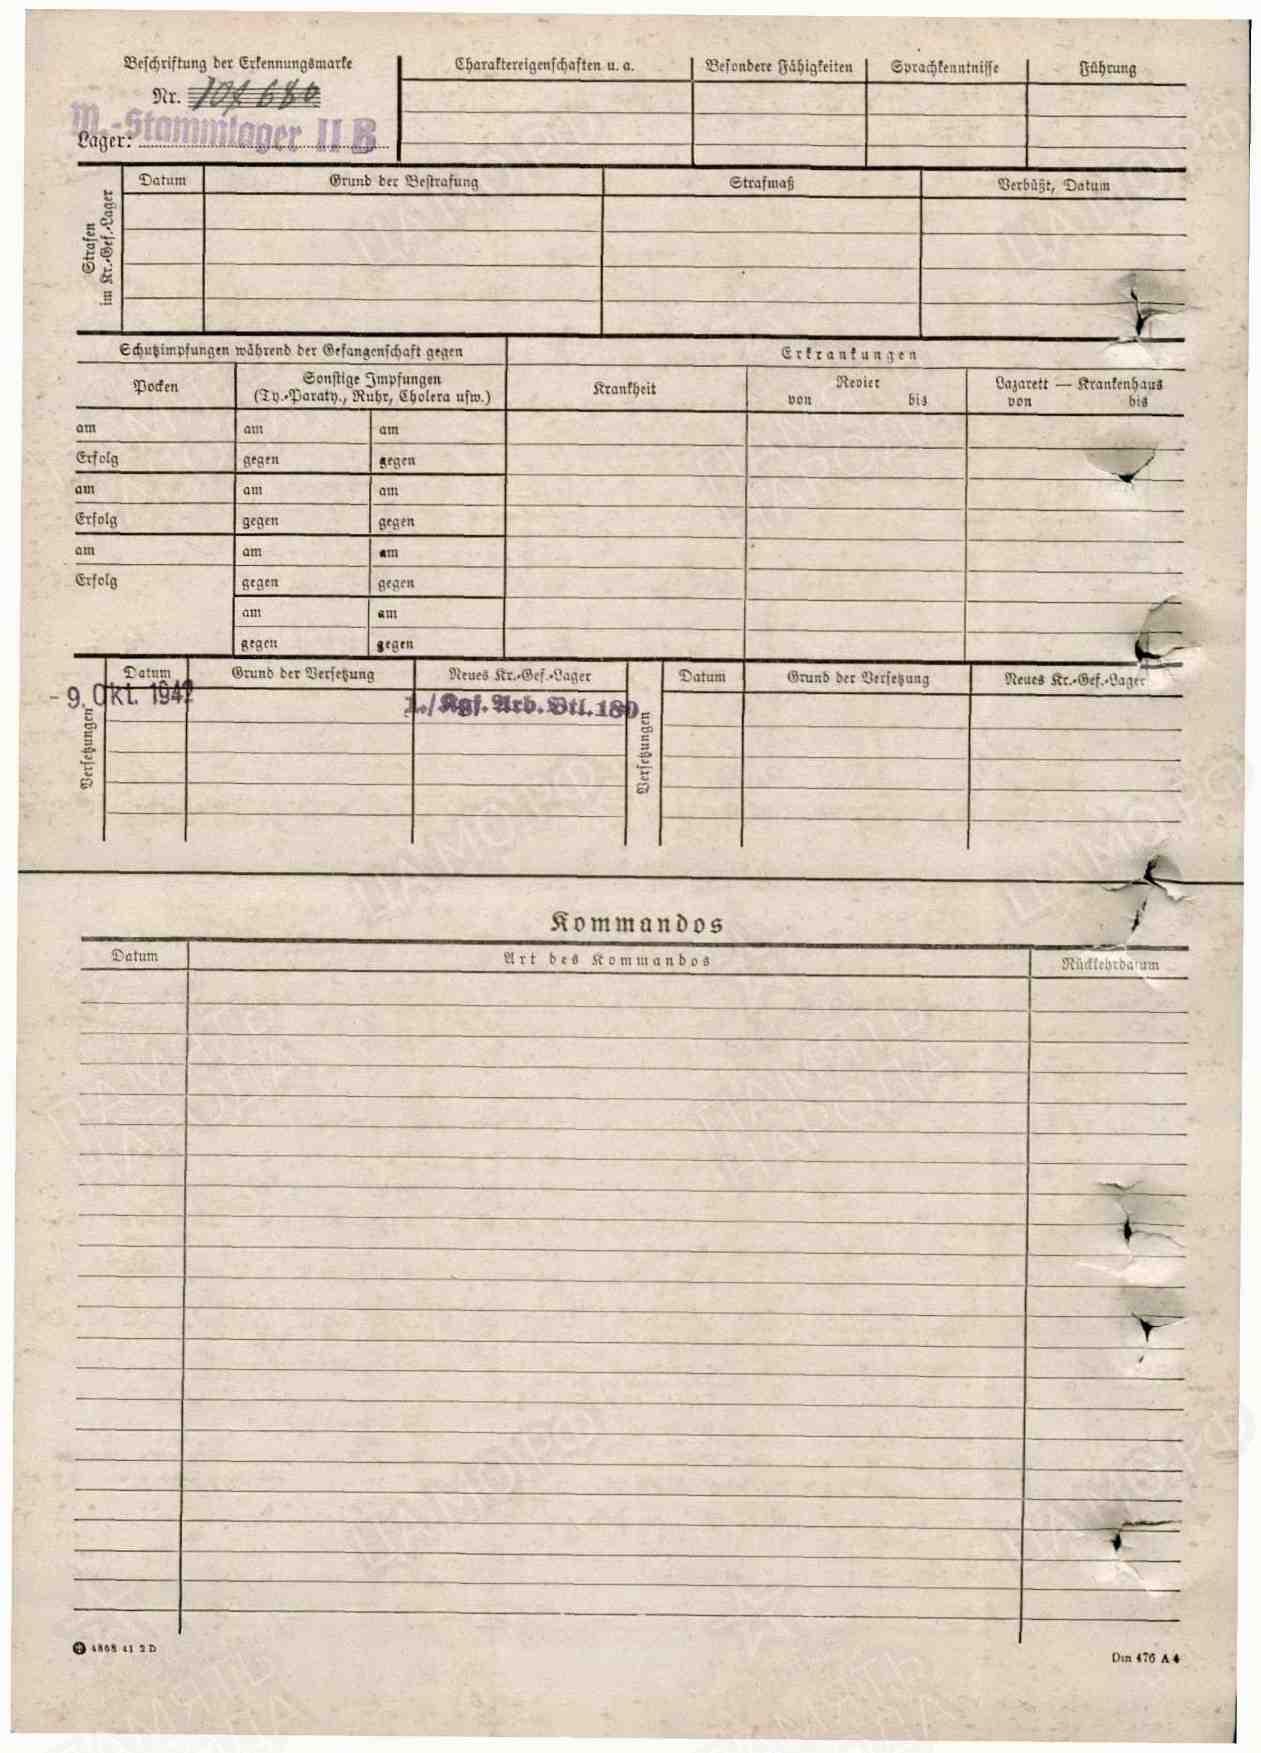 Beschriftung der Erkennungsmarke
Nr. 107 680
Lager: M.-Stammlager II B
Charaktereigenschaften u. a.
Besondere Fähigkeiten
Sprachkenntnisse
Führung
Strafen im Kr.-Gef.-Lager
Datum
Grund der Bestrafung
Strafmaß
Verbüßt, Datum
Schutzimpfungen während der Gefangenschaft gegen
Erkrankungen
Pocken
Sonstige Impfungen
(Ty.-Paraty., Ruhr, Cholera usw.)
Krankheit
Revier
von bis
Lazarett — Krankenhaus
von bis
am am am
Erfolg gegen gegen
am am am
Erfolg gegen gegen
am am am
Erfolg gegen gegen
am am
gegen gegen
Versetzungen
Datum Grund der Versetzung Neues Kr.-Gef.-Lager
- 9. Okt. 1942 1./Kgf. Arb. Btl. 180
Versetzungen
Datum Grund der Versetzung Neues Kr.-Gef.-Lager
Kommandos
Datum Art des Kommandos Rückkehrdatum
4868 41 2 D
Din 476 A 4
ЦАМО.РФ
ПАМЯТЬ
НАРОДА